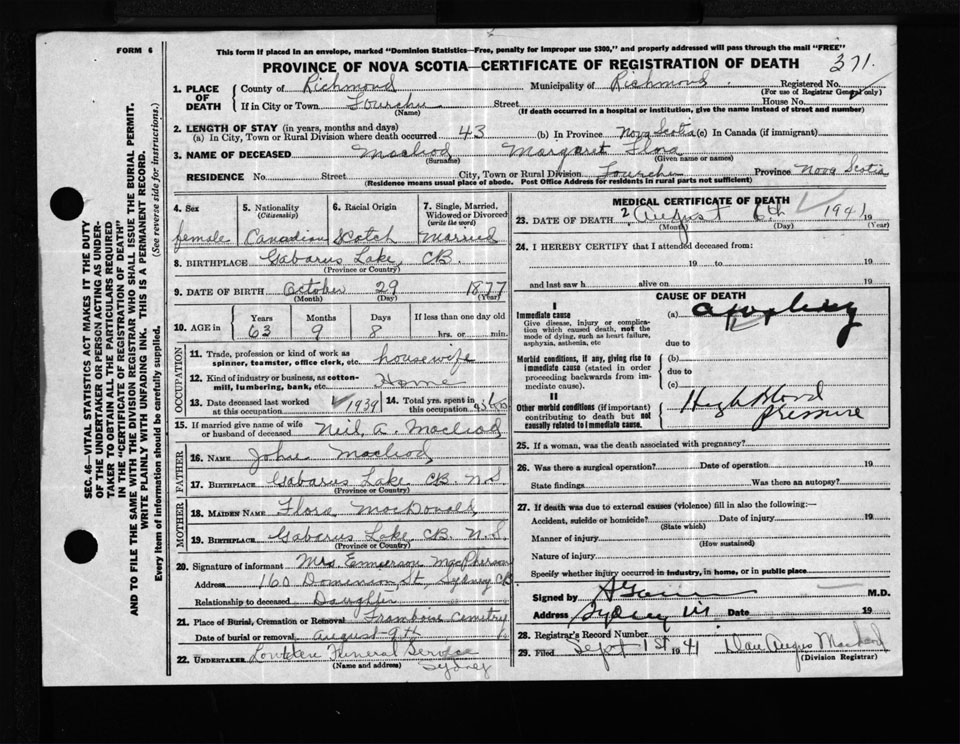 FORM 6
This form if placed in an envelope, marked "Dominion Statistics—Free, penalty for improper use $300," and properly addressed will pass through the mail "FREE"
PROVINCE OF NOVA SCOTIA—CERTIFICATE OF REGISTRATION OF DEATH
371.
1. PLACE OF DEATH
County of Richmond Municipality of Richmond Registered No.
(For use of Registrar General only)
If in City or Town Fourchu Street House No.
(Name) (If death occurred in a hospital or institution, give the name instead of street and number)
2. LENGTH OF STAY (in years, months and days)
(a) In City, Town or Rural Division where death occurred 43 (b) In Province Nova Scotia (c) In Canada (if immigrant)
3. NAME OF DECEASED Macleod Margaret Flora
(Surname) (Given name or names)
RESIDENCE No. Street City, Town or Rural Division Fourchu Province Nova Scotia
(Residence means usual place of abode. Post Office Address for residents in rural parts not sufficient)
4. Sex 5. Nationality (Citizenship) 6. Racial Origin 7. Single, Married, Widowed or Divorced (write the word)
female Canadian Scotch Married
8. BIRTHPLACE Gabarus Lake, CB.
(Province or Country)
9. DATE OF BIRTH October 29 1877
(Month) (Day) (Year)
10. AGE in Years Months Days If less than one day old
63 9 8 hrs. or min.
OCCUPATION
11. Trade, profession or kind of work as spinner, teamster, office clerk, etc. housewife
12. Kind of industry or business, as cotton-mill, lumbering, bank, etc. Home
13. Date deceased last worked at this occupation 1939 14. Total yrs. spent in this occupation
15. If married give name of wife or husband of deceased Neil A. Macleod
FATHER
16. NAME John Macleod
17. BIRTHPLACE Gabarus Lake CB. N.S
(Province or Country)
MOTHER
18. MAIDEN NAME Flora MacDonald
19. BIRTHPLACE Gabarus Lake CB. N.S.
(Province or Country)
20. Signature of informant Mrs Emmerson MacPherson
Address 160 Dominion St Sydney CB
Relationship to deceased Daughter
21. Place of Burial, Cremation or Removal Framboise Cemetry
Date of burial or removal August 9th
22. UNDERTAKER Funeral Service
(Name and address) Sydney
MEDICAL CERTIFICATE OF DEATH
23. DATE OF DEATH August 6th 1941 19
(Month) (Day) (Year)
24. I HEREBY CERTIFY that I attended deceased from:
19 to 19
and last saw h alive on 19
CAUSE OF DEATH
I
Immediate cause (a) apoplexy
Give disease, injury or complication which caused death, not the mode of dying, such as heart failure, asphyxia, asthenia, etc
due to
Morbid conditions, if any, giving rise to immediate cause (stated in order proceeding backwards from immediate cause).
(b)
due to
(c)
II
Other morbid conditions (if important) contributing to death but not causally related to immediate cause.
High Blood pressure
25. If a woman, was the death associated with pregnancy?
26. Was there a surgical operation? Date of operation 19
State findings Was there an autopsy?
27. If death was due to external causes (violence) fill in also the following:—
Accident, suicide or homicide? Date of injury 19
(State which)
Manner of injury
(How sustained)
Nature of injury
Specify whether injury occurred in industry, in home, or in public place
Signed by M.D.
Address Sydney Date 19
28. Registrar's Record Number
29. Filed Sept 1st 1941 Dan Angus Macleod
(Division Registrar)
SEC. 46—VITAL STATISTICS ACT MAKES IT THE DUTY
OF THE UNDERTAKER OR PERSON ACTING AS UNDER-
TAKER TO OBTAIN ALL THE PARTICULARS REQUIRED
IN THE "CERTIFICATE OF REGISTRATION OF DEATH"
AND TO FILE THE SAME WITH THE DIVISION REGISTRAR WHO SHALL ISSUE THE BURIAL PERMIT.
WRITE PLAINLY WITH UNFADING INK. THIS IS A PERMANENT RECORD.
Every item of information should be carefully supplied. (See reverse side for instructions.)